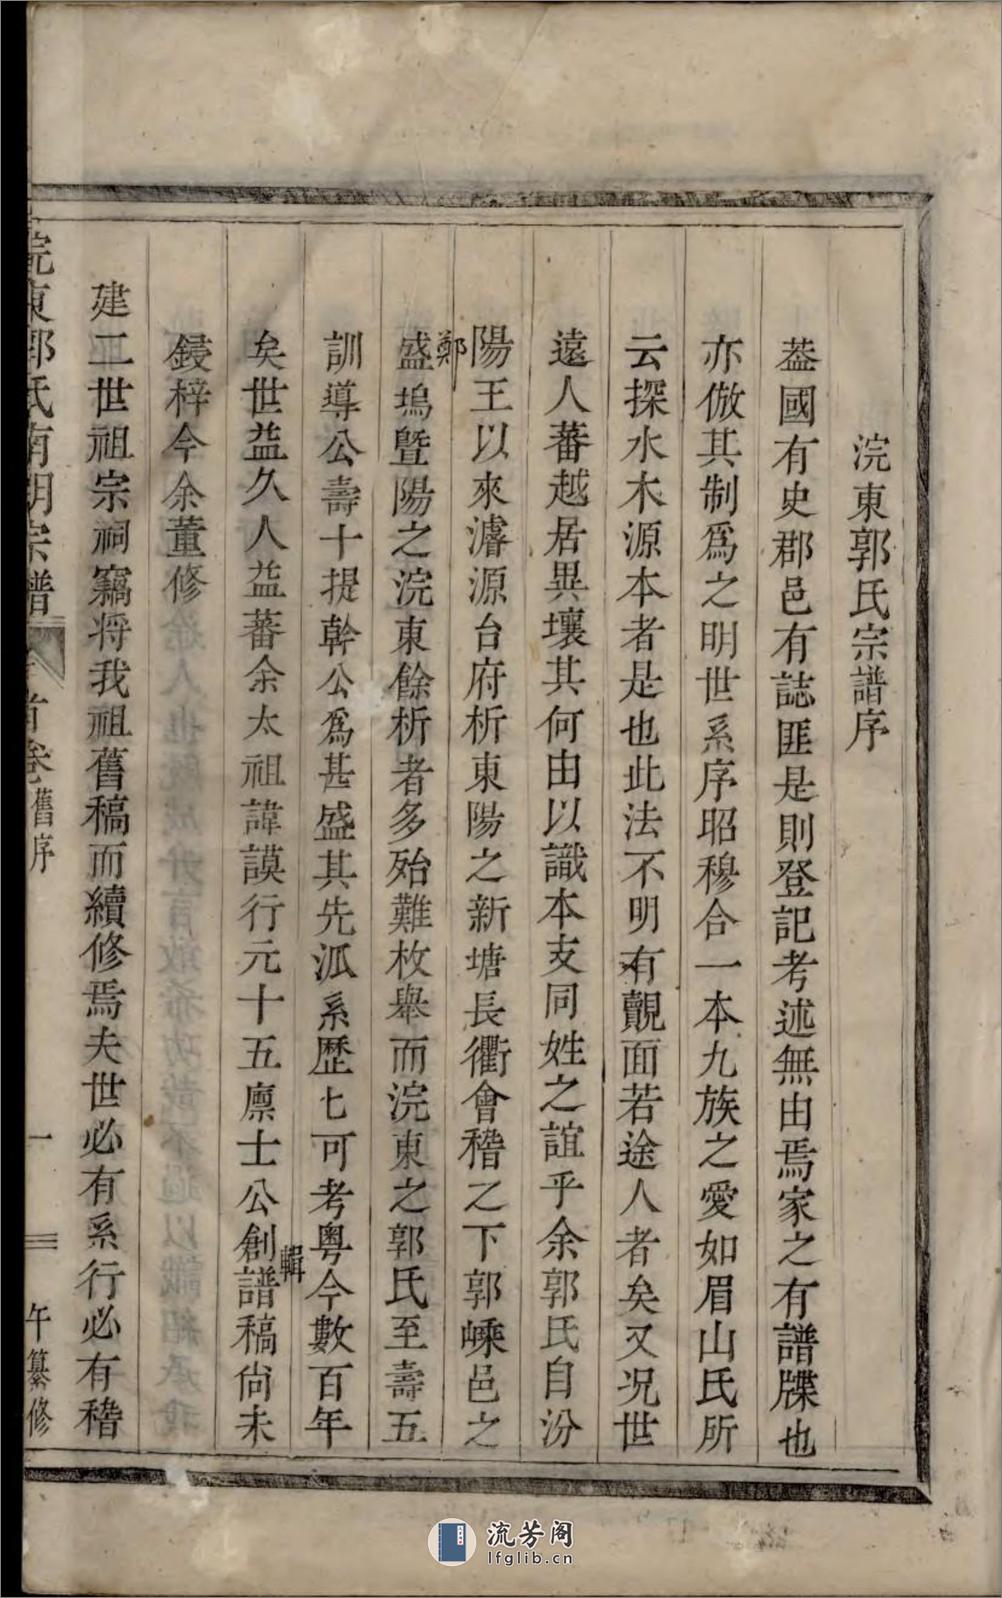 浣東郭氏宗譜序
葢國有史郡邑有誌匪是則登記考述無由焉家之有譜牒也
亦倣其制爲之明世系序昭穆合一本九族之愛如眉山氏所
云探水木源本者是也此法不明有觀面若途人者矣又况世
遠人蕃越居異壤其何由以識本支同姓之誼乎余郭氏自汾
陽王以來濬源台府析東陽之新塘長衢會稽之下郭嵊邑之
鄭
盛塢暨陽之浣東餘析者多殆難枚舉而浣東之郭氏至壽五
訓導公壽十提幹公爲甚盛其先派系歷七可考粤今數百年
輯
矣世益久人益蕃余太祖諱謨行元十五廪士公創譜稿尙未
鋟梓今余董修
建二世祖宗祠竊將我祖舊稿而續修焉夫世必有系行必有稽
浣東郭氏南朋宗譜 首卷 舊序 一 午纂修
流芳阁
lfglib.cn